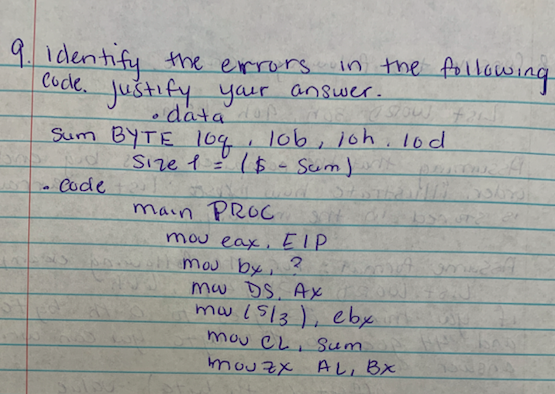 9. Identify the errors in the following
code. Justify your answer.
.data
Sum BYTE 10q, 10b, 10h, 10d
Size1 = ($ - Sum)
.code
main PROC
mov eax, EIP
mov bx, ?
mov DS, Ax
mov (5/3), ebx
mov CL, Sum
movzx AL, BX